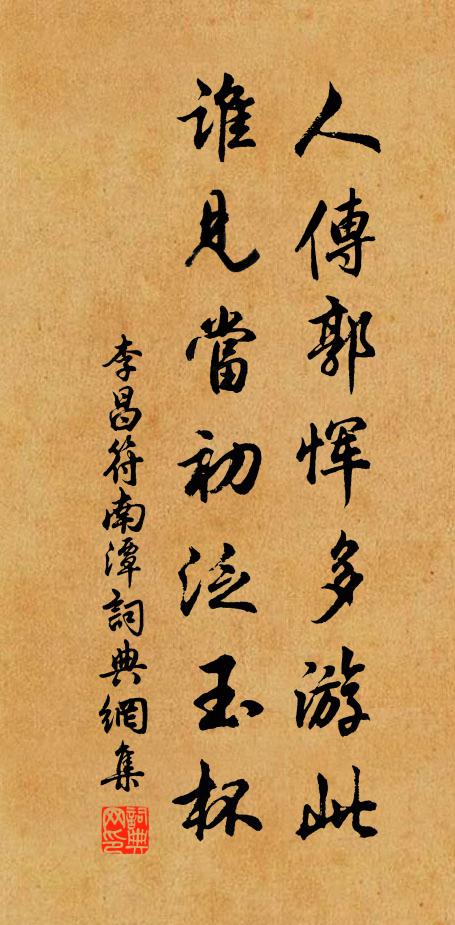 人傳郭恽多游此
誰見當初泛玉杯
李昌符南潭詞典網集
詞典网印